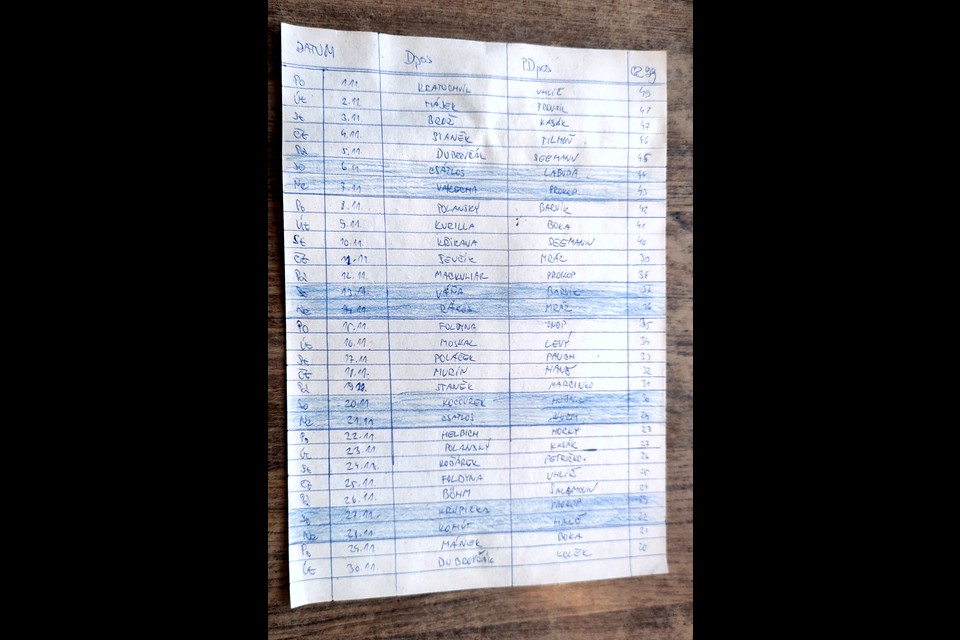 DATUM DPOS PDPOS CZ 99
Po 1.11. KRATOCHVÍL UHLIŠ 49
Út 2.11. MÁJEK
St 3.11. BROŽ KASÁK 47
Čt 4.11. STANĚK 46
Pá 5.11. DUBOVČÁK SEEMANN 45
So 6.11. CSÁTLOS LABUDA 44
Ne 7.11. VALECHA PROKOP 43
Po 8.11. POLANSKÝ BARVÍK 42
Út 9.11. KURILLA BOKA 41
St 10.11. KŘIKAVA SEEMANN 40
Čt 11.11. ŠEVČÍK MRÁZ 39
Pá 12.11. MACKULIAK PROKOP 38
So 13.11. VÁŇA BARVÍK 37
Ne 14.11. MRÁZ 36
Po 15.11. FOLDYNA 35
Út 16.11. MOSKAL LEVÝ 34
St 17.11. POLÁČEK PAUCH 33
Čt 18.11. MURÍN 32
Pá 19.11. STANĚK MARCINKO 31
So 20.11. KOCOUREK 30
Ne 21.11. CSÁTLOS 29
Po 22.11. HELBICH HORKÝ 28
Út 23.11. POLANSKÝ KASÁK 27
St 24.11. KOŠÁREK PETRIČKO 26
Čt 25.11. FOLDYNA UHLIŠ 25
Pá 26.11. BÖHM ŠALAMOUN 24
So 27.11. KRUPIČKA PROKOP 23
Ne 28.11. 22
Po 29.11. MÁJEK BOKA 21
Út 30.11. DUBOVČÁK KOLEK 20